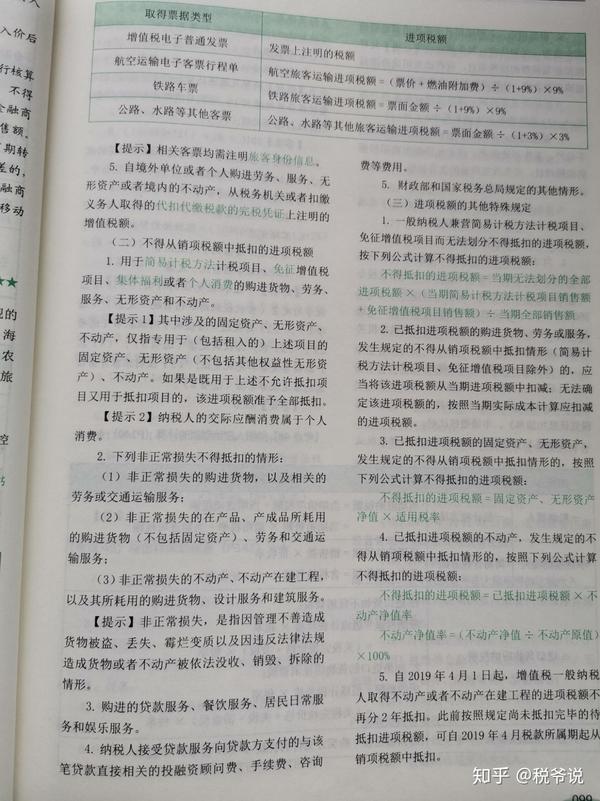 入价后
行核算
不得
金融商
售额。
期转
差的，
融商
移动
★★
观的
海
农
旅
空
取得票据类型
进项税额
增值税电子普通发票
发票上注明的税额
航空运输电子客票行程单
航空旅客运输进项税额＝（票价＋燃油附加费）÷（1+9%）×9%
铁路车票
铁路旅客运输进项税额＝票面金额÷（1+9%）×9%
公路、水路等其他客票
公路、水路等其他旅客运输进项税额＝票面金额÷（1+3%）×3%
【提示】相关客票均需注明旅客身份信息。
5. 自境外单位或者个人购进劳务、服务、无
形资产或者境内的不动产，从税务机关或者扣缴
义务人取得的代扣代缴税款的完税凭证上注明的
增值税额。
（二）不得从销项税额中抵扣的进项税额
1. 用于简易计税方法计税项目、免征增值税
项目、集体福利或者个人消费的购进货物、劳务、
服务、无形资产和不动产。
【提示1】其中涉及的固定资产、无形资产、
不动产，仅指专用于（包括租入的）上述项目的
固定资产、无形资产（不包括其他权益性无形资
产）、不动产。如果是既用于上述不允许抵扣项
目又用于抵扣项目的，该进项税额准予全部抵扣。
【提示2】纳税人的交际应酬消费属于个人
消费。
2. 下列非正常损失不得抵扣的情形：
（1）非正常损失的购进货物，以及相关的
劳务或交通运输服务；
（2）非正常损失的在产品、产成品所耗用
的购进货物（不包括固定资产）、劳务和交通运
输服务；
（3）非正常损失的不动产、不动产在建工程，
以及其所耗用的购进货物、设计服务和建筑服务。
【提示】非正常损失，是指因管理不善造成
货物被盗、丢失、霉烂变质以及因违反法律法规
造成货物或者不动产被依法没收、销毁、拆除的
情形。
3. 购进的贷款服务、餐饮服务、居民日常服
务和娱乐服务。
4. 纳税人接受贷款服务向贷款方支付的与该
笔贷款直接相关的投融资顾问费、手续费、咨询
费等费用。
5. 财政部和国家税务总局规定的其他情形。
（三）进项税额的其他特殊规定
1. 一般纳税人兼营简易计税方法计税项目、
免征增值税项目而无法划分不得抵扣的进项税额，
按下列公式计算不得抵扣的进项税额：
不得抵扣的进项税额＝当期无法划分的全部
进项税额×（当期简易计税方法计税项目销售额
＋免征增值税项目销售额）÷当期全部销售额
2. 已抵扣进项税额的购进货物、劳务或服务，
发生规定的不得从销项税额中抵扣情形（简易计
税方法计税项目、免征增值税项目除外）的，应
当将该进项税额从当期进项税额中扣减；无法确
定该进项税额的，按照当期实际成本计算应扣减
的进项税额。
3. 已抵扣进项税额的固定资产、无形资产，
发生规定的不得从销项税额中抵扣情形的，按照
下列公式计算不得抵扣的进项税额：
不得抵扣的进项税额＝固定资产、无形资产
净值×适用税率
4. 已抵扣进项税额的不动产，发生规定的不
得从销项税额中抵扣情形的，按照下列公式计算
不得抵扣的进项税额：
不得抵扣的进项税额＝已抵扣进项税额×不
动产净值率
不动产净值率＝（不动产净值÷不动产原值）
×100%
5. 自2019年4月1日起，增值税一般纳税
人取得不动产或者不动产在建工程的进项税额不
再分2年抵扣。此前按照规定尚未抵扣完毕的待
抵扣进项税额，可自2019年4月税款所属期起从
销项税额中抵扣。
099
知乎 @税爷说